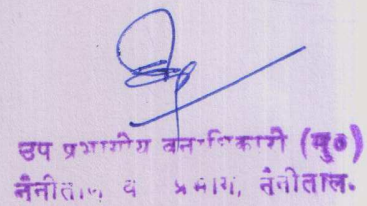 उप प्रभागीय वनाधिकारी (मु०)
नैनीताल व प्रभाग, नैनीताल.